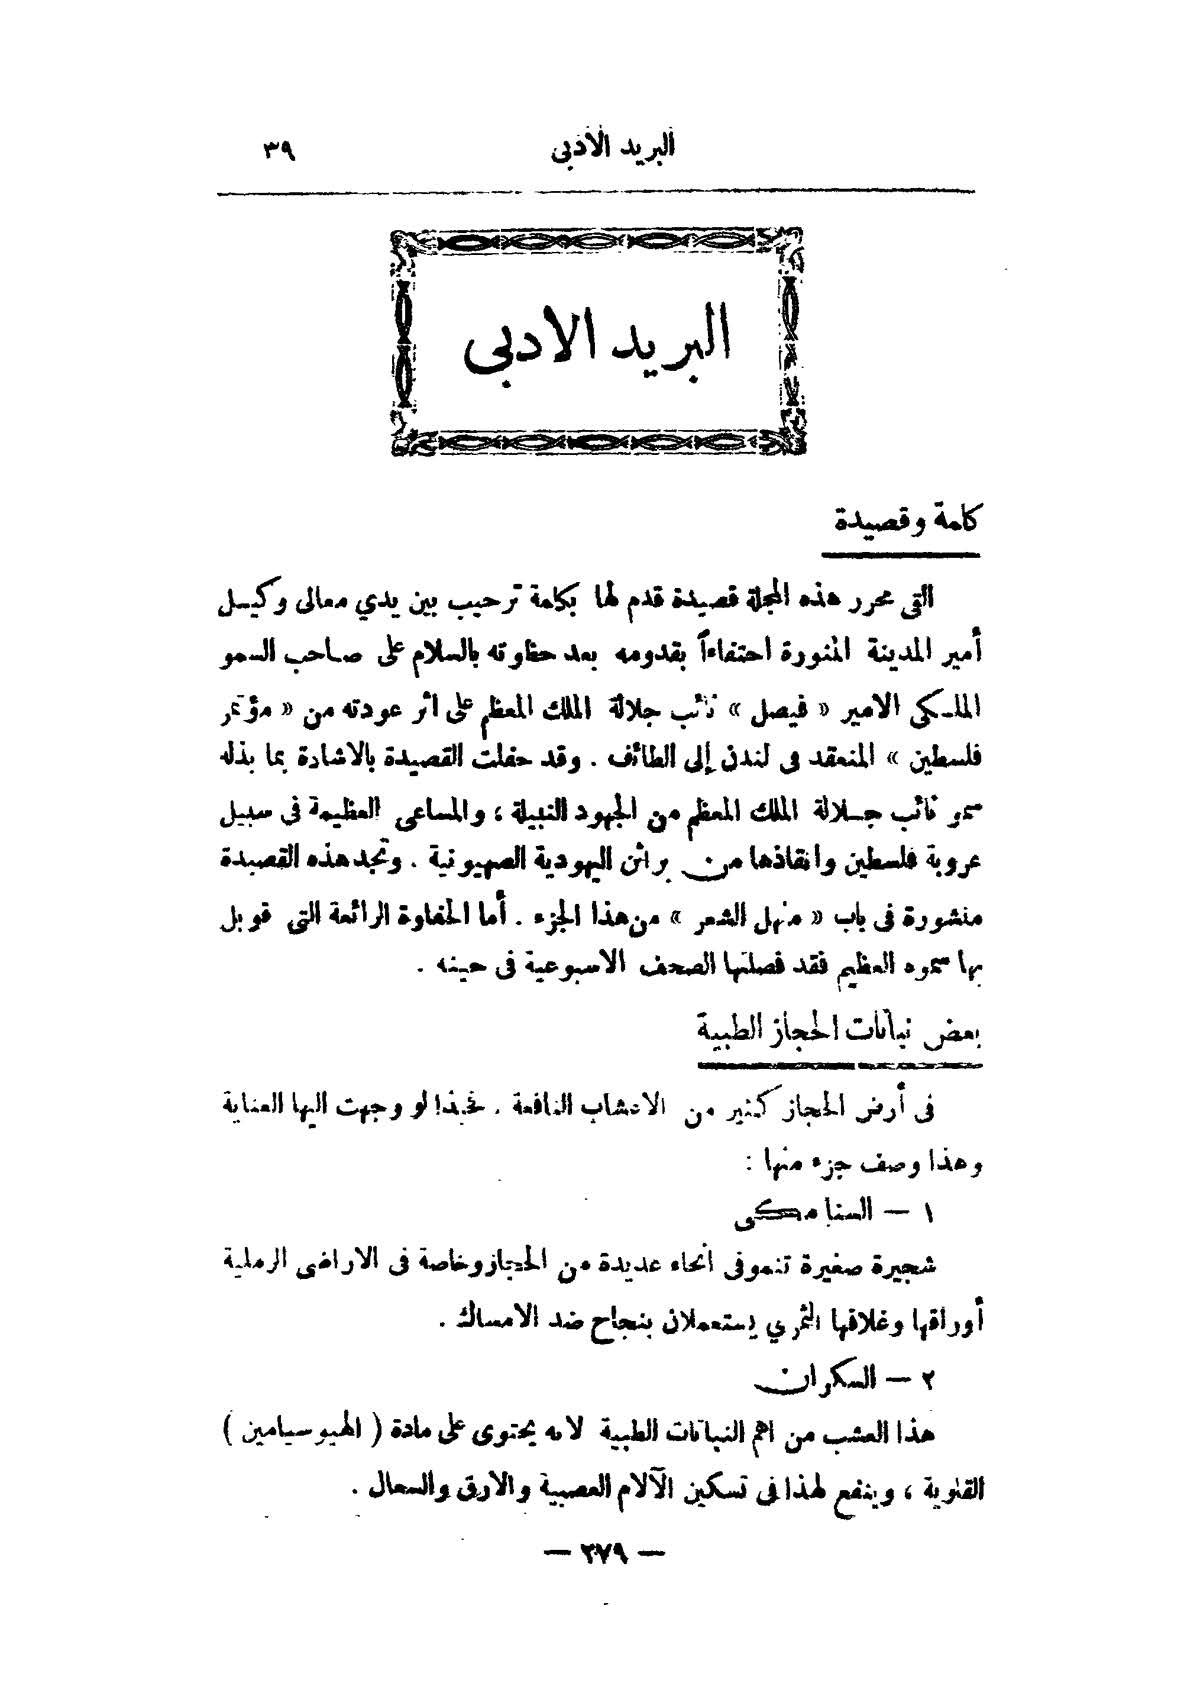 البريد الأدبى
٣٩
البريد الادبى
كلمة وقصيدة
التى محرر هذه المجلة قصيدة قدم لها بكلمة ترحيب بين يدي معالى وكيـل
أمير المدينة المنورة احتفاءاً بقدومه بعد حظوته بالسلام على صاحب السمو
الملـكى الامير « فيصل » نائب جلالة الملك المعظم على أثر عودته من « مؤتمر
فلسطين » المنعقد فى لندن إلى الطائف . وقد حفلت القصيدة بالاشادة بما بذله
سمو نائب جـلالة الملك المعظم من الجهود النبيلة ، والمساعى العظيمة فى سبيل
عروبة فلسطين وانقاذها من براثن اليهودية الصهيونية . وتجد هذه القصيدة
منشورة فى باب « منهل الشعر » من هذا الجزء . أما الحفاوة الرائعة التى قوبل
بها سموه العظيم فقد فصلتها الصحف الاسبوعية فى حينه .
بعض نباتات الحجاز الطبية
فى أرض الحجاز كثير من الاعشاب النافعة . فحبذا لو وجهت اليها العناية
وهذا وصف جزء منها :
١ — السنا مكى
شجيرة صغيرة تنمو فى أنحاء عديدة من الحجاز وخاصة فى الاراضى الرملية
أوراقها وغلاقها الثمري يستعملان بنجاح ضد الامساك .
٢ — السكران
هذا العشب من اهم النباتات الطبية لانه يحتوى على مادة ( الهيوسيامين )
القلوية ، وينفع لهذا فى تسكين الآلام العصبية والارق والسعال .
— ٢٧٩ —